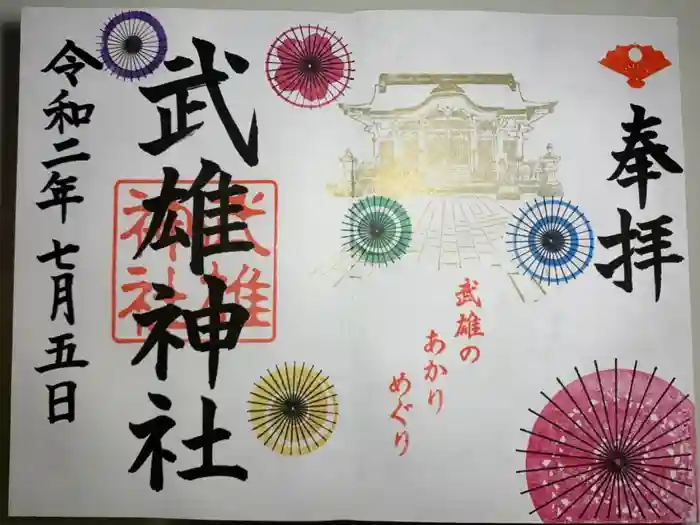 奉拝
武雄の
あかり
めぐり
武雄神社
武雄
神社
令和二年七月五日